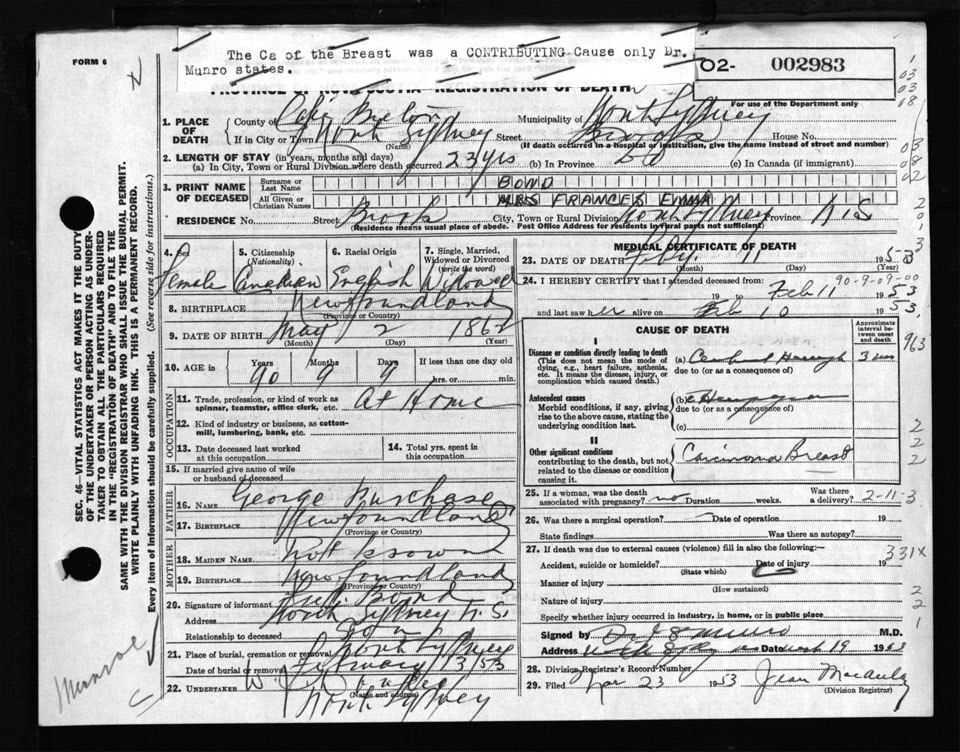 FORM 6
The Ca of the Breast was a CONTRIBUTING Cause only Dr.
Munro states.
O2- 002983
For use of the Department only
PROVINCE OF NOVA SCOTIA REGISTRATION OF DEATH
1. PLACE OF DEATH
County of Cape Breton Municipality of North Sydney
If in City or Town North Sydney Street Brook House No.
(Name) (If death occurred in a hospital or institution, give the name instead of street and number)
2. LENGTH OF STAY (in years, months and days)
(a) In City, Town or Rural Division where death occurred 23 yrs (b) In Province 50 (c) In Canada (if immigrant)
3. PRINT NAME OF DECEASED
Surname or Last Name BOND
All Given or Christian Names MRS FRANCES EMMA
RESIDENCE No. Street Brook City, Town or Rural Division North Sydney Province N.S
(Residence means usual place of abode. Post Office Address for residents in rural parts not sufficient)
4. Sex Female
5. Citizenship (Nationality) Canadian
6. Racial Origin English
7. Single, Married, Widowed or Divorced (write the word) Widowed
8. BIRTHPLACE Newfoundland
(Province or Country)
9. DATE OF BIRTH May 2 1862
(Month) (Day) (Year)
10. AGE in Years 90 Months 9 Days 9 If less than one day old
hrs. or min.
OCCUPATION
11. Trade, profession, or kind of work as spinner, teamster, office clerk, etc. At Home
12. Kind of industry or business, as cotton-mill, lumbering, bank, etc.
13. Date deceased last worked at this occupation
14. Total yrs. spent in this occupation
15. If married give name of wife or husband of deceased
FATHER
16. Name George Purchase
17. BIRTHPLACE Newfoundland
(Province or Country)
MOTHER
18. MAIDEN NAME Not known
19. BIRTHPLACE Newfoundland
(Province or Country)
20. Signature of informant Bond
Address North Sydney N.S.
Relationship to deceased Son
21. Place of burial, cremation or removal North Sydney
Date of burial or removal February 13/53
22. UNDERTAKER W.
(Name and address)
North Sydney
MEDICAL CERTIFICATE OF DEATH
23. DATE OF DEATH Feby. 11 1953
(Month) (Day)
24. I HEREBY CERTIFY that I attended deceased from:
Feb 11 1953
90-9-09-00
and last saw her alive on Feb 10 1953
CAUSE OF DEATH
Approximate interval between onset and death
I
Disease or condition directly leading to death
(This does not mean the mode of dying, e.g., heart failure, asthenia, etc. It means the disease, injury, or complication which caused death.)
(a) Cerebral
due to (or as a consequence of)
Antecedent causes
Morbid conditions, if any, giving rise to the above cause, stating the underlying condition last.
(b)
due to (or as a consequence of)
(c)
II
Other significant conditions
contributing to the death, but not related to the disease or condition causing it.
Carcinoma Breast
25. If a woman, was the death associated with pregnancy? no Duration weeks. Was there a delivery? 2-11-3
26. Was there a surgical operation? Date of operation 19
State findings Was there an autopsy?
27. If death was due to external causes (violence) fill in also the following:—
Accident, suicide or homicide? Date of injury 19
(State which)
Manner of injury
(How sustained)
Nature of injury
Specify whether injury occurred in industry, in home, or in public place
Signed by M.D.
Address Date 19 1953
28. Division Registrar's Record Number
29. Filed Mar 23 1953 Jean Macaulay
(Division Registrar)
331X
963
SEC. 46—VITAL STATISTICS ACT MAKES IT THE DUTY
OF THE UNDERTAKER OR PERSON ACTING AS UNDER-
TAKER TO OBTAIN ALL THE PARTICULARS REQUIRED
IN THE "REGISTRATION OF DEATH" AND TO FILE THE
SAME WITH THE DIVISION REGISTRAR WHO SHALL ISSUE THE BURIAL PERMIT.
WRITE PLAINLY WITH UNFADING INK. THIS IS A PERMANENT RECORD.
Every item of information should be carefully supplied. (See reverse side for instructions.)